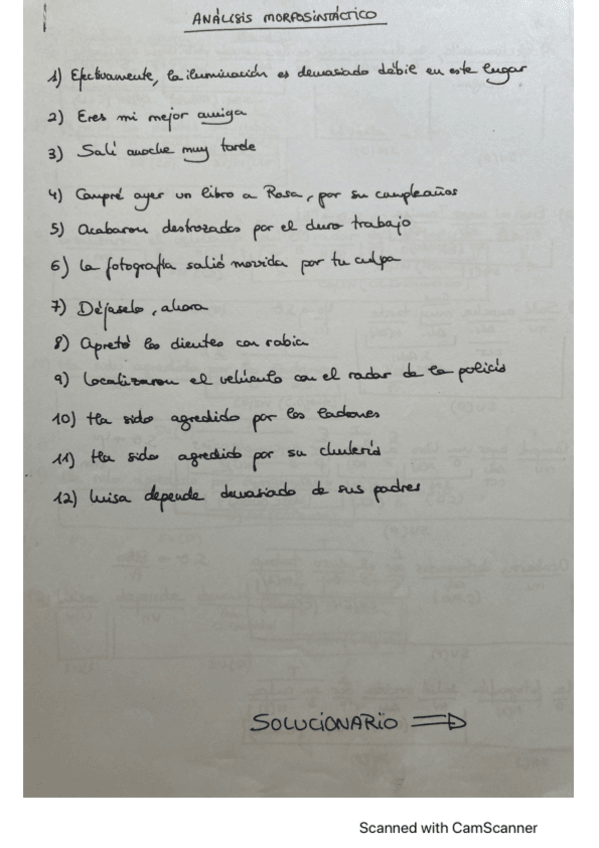 ANÁLISIS MORFOSINTÁCTICO
1) Efectivamente, la iluminación es demasiado débil en este lugar
2) Eres mi mejor amiga
3) Salí anoche muy tarde
4) Compré ayer un libro a Rosa, por su cumpleaños
5) Acabaron destrozados por el duro trabajo
6) La fotografía salió movida por tu culpa
7) Déjaselo, ahora
8) Apretó los dientes con rabia
9) Localizaron el vehículo con el radar de la policía
10) Ha sido agredido por los ladrones
11) Ha sido agredido por su chulería
12) Luisa depende demasiado de sus padres
SOLUCIONARIO
Scanned with CamScanner